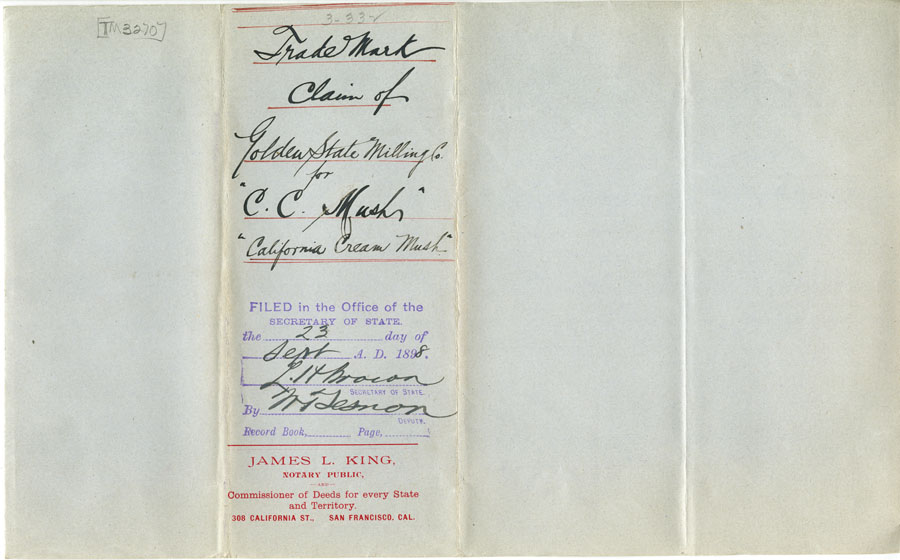 [TM3270]
3-332
Trade Mark
Claim of
Golden State Milling Co.
for
"C. C. Mush"
"California Cream Mush"
FILED in the Office of the
SECRETARY OF STATE.
the 23 day of
Sept A. D. 1898.
L. H. Brown
SECRETARY OF STATE.
By
DEPUTY.
Record Book, Page,
JAMES L. KING,
NOTARY PUBLIC,
—AND—
Commissioner of Deeds for every State
and Territory.
308 CALIFORNIA ST., SAN FRANCISCO, CAL.